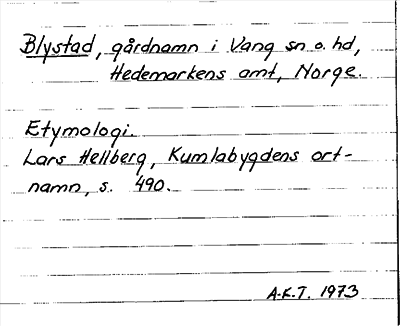 Blystad, gårdnamn i Vang sn o. hd,
Hedemarkens amt, Norge.
Etymologi.
Lars Hellberg, Kumlabygdens ort-
namn, s. 490.
A.K.T. 1973